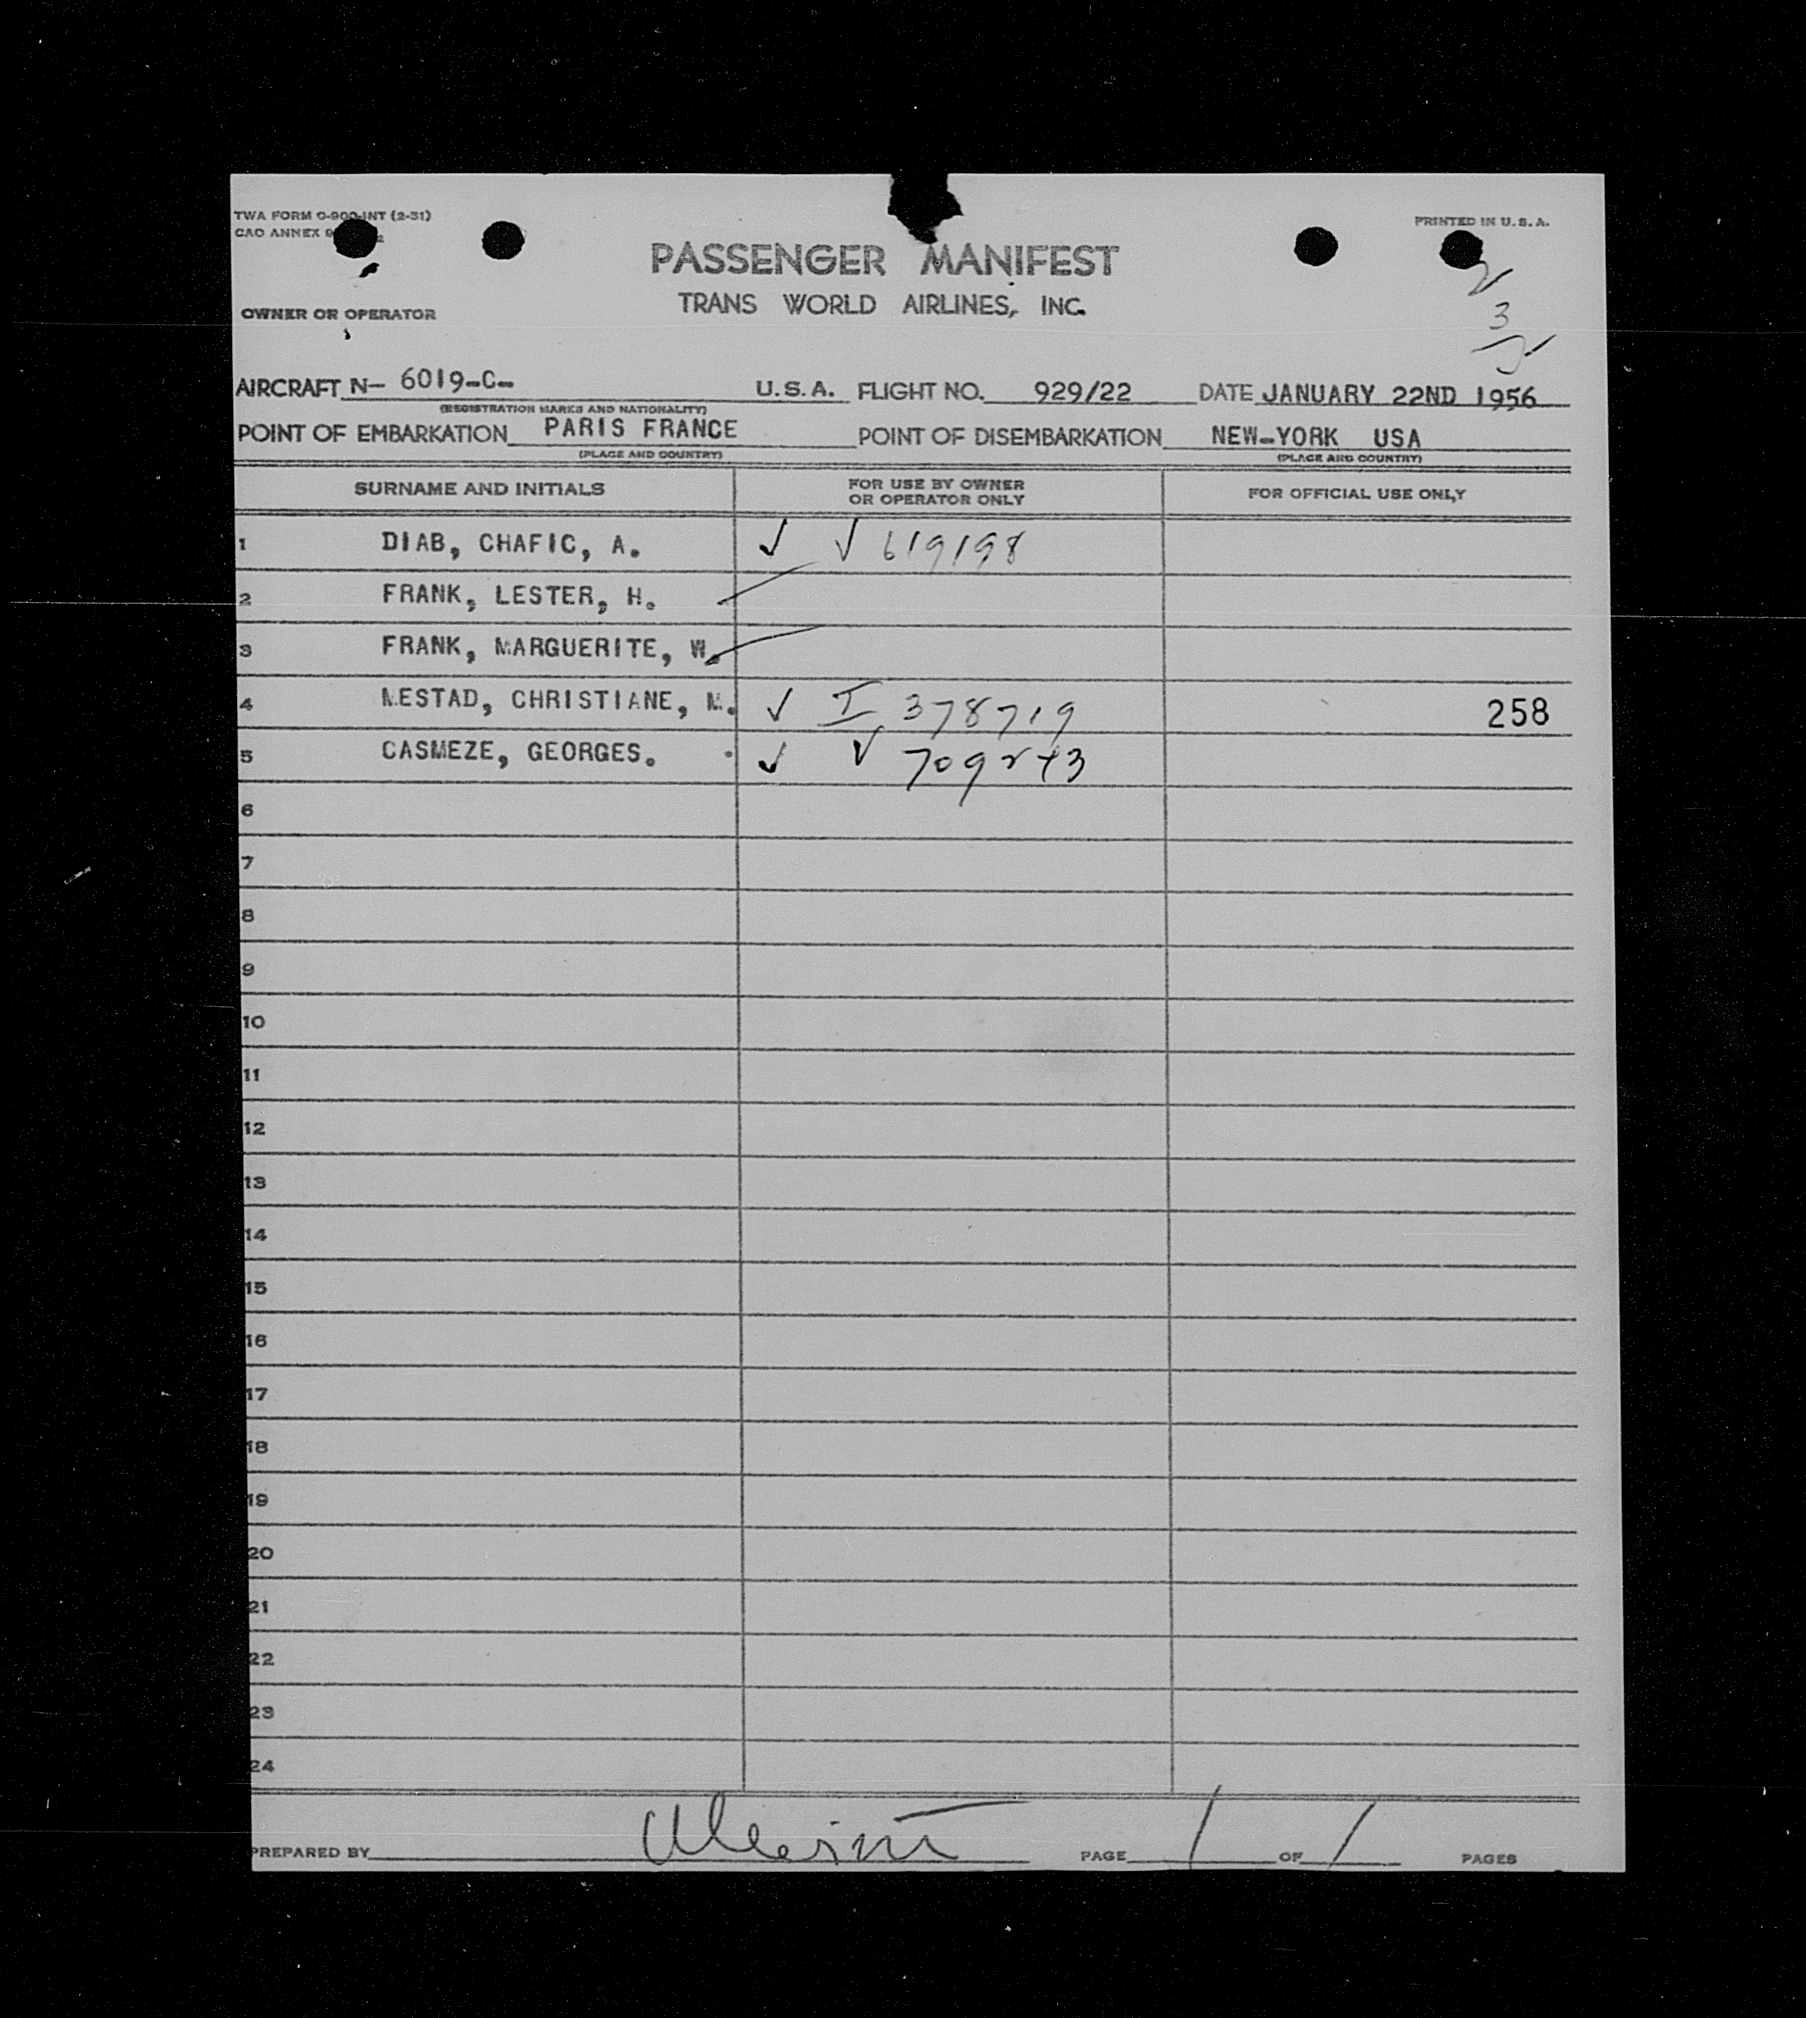 TWA FORM O-900-INT (2-51)
CAO ANNEX 9
PRINTED IN U.S.A.
PASSENGER MANIFEST
TRANS WORLD AIRLINES, INC.
2
3
OWNER OR OPERATOR
AIRCRAFT N- 6019-C- U.S.A. FLIGHT NO. 929/22 DATE JANUARY 22ND 1956
(REGISTRATION MARKS AND NATIONALITY)
POINT OF EMBARKATION PARIS FRANCE POINT OF DISEMBARKATION NEW-YORK USA
(PLACE AND COUNTRY) (PLACE AND COUNTRY)
SURNAME AND INITIALS FOR USE BY OWNER OR OPERATOR ONLY FOR OFFICIAL USE ONLY
1 DIAB, CHAFIC, A. ✓ V 619198
2 FRANK, LESTER, H.
3 FRANK, MARGUERITE, W.
4 MESTAD, CHRISTIANE, M. ✓ I 378719 258
5 CASMEZE, GEORGES. ✓ V
6
7
8
9
10
11
12
13
14
15
16
17
18
19
20
21
22
23
24
PREPARED BY PAGE 1 OF 1 PAGES